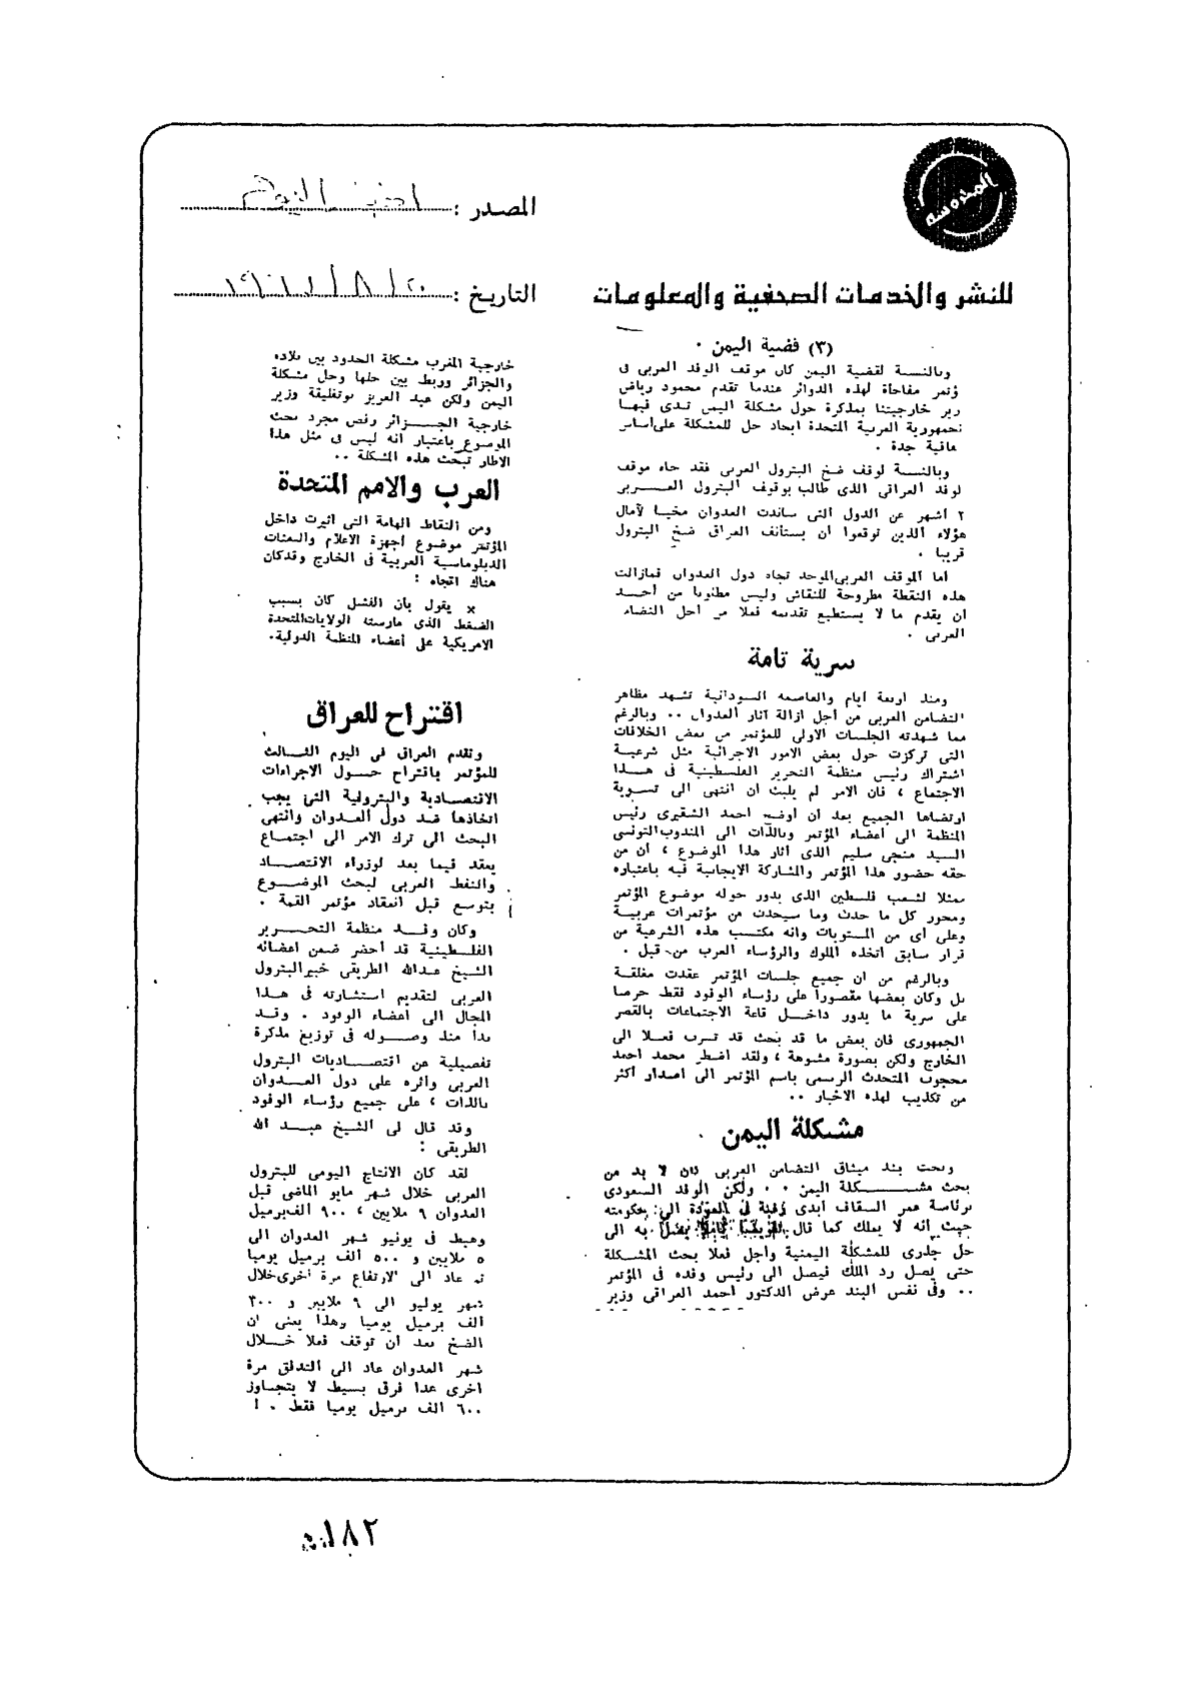 المحروسة
للنشر والخدمات الصحفية والمعلومات
المصدر :
التاريخ :
(٣) قضية اليمن .
وبالنسبة لقضية اليمن كان موقف الوفد العربى فى
ؤتمر مفاجأة لهذه الدوائر عندما تقدم محمود رياض
زير خارجيتنا بمذكرة حول مشكلة اليمن تبدى فيها
جمهورية العربية المتحدة ايجاد حل للمشكلة على أساس
جدة .
وبالنسبة لوقف ضخ البترول العربى فقد جاء موقف
لوفد العراقى الذى طالب بوقيف البترول العربى
٢ أشهر عن الدول التى ساندت العدوان مخيبا لآمال
هؤلاء الذين توقعوا ان يستأنف العراق ضخ البترول
قريبا .
أما الموقف العربى الموحد تجاه دول العدوان فمازالت
هذه النقطة مطروحة للنقاش وليس مطلوبا من أحد
ان يقدم ما لا يستطيع تقديمه فعلا من اجل النضال
العربى .
سرية تامة
ومنذ اربعة ايام والعاصمة السودانية تشهد مظاهر
التضامن العربى من أجل ازالة آثار العدوان .. وبالرغم
مما شهدته الجلسات الاولى للمؤتمر من بعض الخلافات
التى تركزت حول بعض الامور الاجرائية مثل شرعية
اشتراك رئيس منظمة التحرير الفلسطينية فى هذا
الاجتماع ، فان الامر لم يلبث ان انتهى الى تسوية
ارتضاها الجميع بعد أن أوضح احمد الشقيرى رئيس
المنظمة الى أعضاء المؤتمر وبالذات الى المندوب التونسى
السيد منجى سليم الذى أثار هذا الموضوع ، ان من
حقه حضور هذا المؤتمر والمشاركة الايجابية فيه باعتباره
ممثلا لشعب فلسطين الذى يدور حوله موضوع المؤتمر
ومحور كل ما حدث وما سيحدث من مؤتمرات عربية
وعلى أى من المستويات وانه مكتسب هذه الشرعية من
قرار سابق اتخذه الملوك والرؤساء العرب من قبل .
وبالرغم من ان جميع جلسات المؤتمر عقدت مغلقة
بل وكان بعضها مقصورا على رؤساء الوفود فقط حرصا
على سرية ما يدور داخل قاعة الاجتماعات بالقصر
الجمهورى فان بعض ما قد بحث قد تسرب فعلا الى
الخارج ولكن بصورة مشوهة ، ولقد اضطر محمد احمد
محجوب المتحدث الرسمى باسم المؤتمر الى اصدار أكثر
من تكذيب لهذه الاخبار ..
مشكلة اليمن .
وتحت بند ميثاق التضامن العربى كان لا بد من
بحث مشكلة اليمن .. ولكن الوفد السعودى
برئاسة عمر السقاف ابدى رغبة فى العودة الى حكومته
حيث انه لا يملك كما قال به الى
حل جذرى للمشكلة اليمنية وأجل فعلا بحث المشكلة
حتى يصل رد الملك فيصل الى رئيس وفده فى المؤتمر
.. وفى نفس البند عرض الدكتور احمد العراقى وزير
خارجية المغرب مشكلة الحدود بين بلاده
والجزائر وربط بين حلها وحل مشكلة
اليمن ولكن عبد العزيز بوتفليقة وزير
خارجية الجزائر رفض مجرد بحث
الموضوع باعتبار انه ليس فى مثل هذا
الاطار تبحث هذه المشكلة ..
العرب والامم المتحدة
ومن النقاط الهامة التى اثيرت داخل
المؤتمر موضوع أجهزة الاعلام والبعثات
الدبلوماسية العربية فى الخارج وقد كان
هناك اتجاه :
× يقول بأن الفشل كان بسبب
الضغط الذى مارسته الولايات المتحدة
الامريكية على أعضاء المنظمة الدولية.
اقتراح للعراق
وتقدم العراق فى اليوم الثالث
للمؤتمر باقتراح حول الاجراءات
الاقتصادية والبترولية التى يجب
اتخاذها ضد دول العدوان وانتهى
البحث الى ترك الامر الى اجتماع
يعقد فيما بعد لوزراء الاقتصاد
والنفط العربى لبحث الموضوع
بتوسع قبل انعقاد مؤتمر القمة .
وكان وفد منظمة التحرير
الفلسطينية قد أحضر ضمن اعضائه
الشيخ عبدالله الطريقى خبير البترول
العربى لتقديم استشارته فى هذا
المجال الى أعضاء الوفود . وقد
بدأ منذ وصوله فى توزيع مذكرة
تفصيلية عن اقتصاديات البترول
العربى وأثره على دول العدوان
بالذات ، على جميع رؤساء الوفود
وقد قال لى الشيخ عبد الله
الطريقى :
لقد كان الانتاج اليومى للبترول
العربى خلال شهر مايو الماضى قبل
العدوان ٩ ملايين ، ٩٠٠ الف برميل
وهبط فى يونيو شهر العدوان الى
٥ ملايين و ٥٠٠ الف برميل يوميا
ثم عاد الى الارتفاع مرة أخرى خلال
شهر يوليو الى ٩ ملايين و ٣٠٠
الف برميل يوميا وهذا يعنى ان
الضخ بعد ان توقف فعلا خلال
شهر العدوان عاد الى التدفق مرة
اخرى عدا فرق بسيط لا يتجاوز
٦٠٠ الف برميل يوميا فقط . !